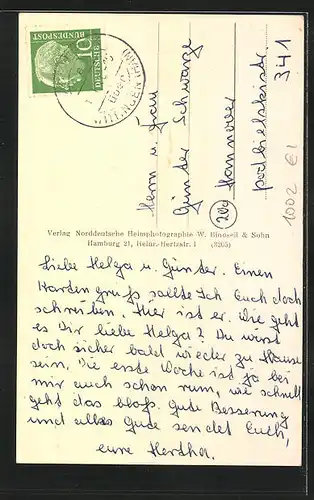 DEUTSCHE
BUNDESPOST
10
WITTINGEN
Herrn u. Frau
Günter Schwarze
Hannover
podbielskistr.
341
20a
1002 E1
Verlag Norddeutsche Heimphotographie W. Bindseil & Sohn
Hamburg 21, Heinr.-Hertzstr. 1 (3205)
Liebe Helga u. Günter. Einen
Kartengruß sollte Ich Euch doch
schreiben. Hier ist er. Wie geht
es Dir liebe Helga? Du wirst
doch sicher bald wieder zu Hause
sein. Die erste Woche ist ja bei
mir auch schon rum, wie schnell
geht das bloß. Gute Besserung
und alles Gute sendet Euch,
eure Hertha.